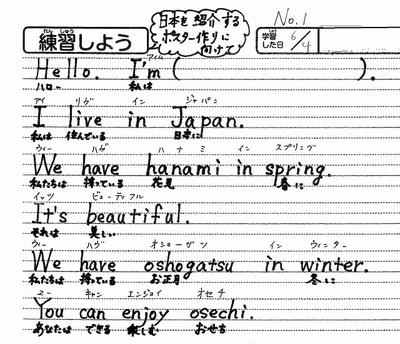 No.1
日本を紹介する
ポスター作りに
向けて
れんしゅう
練習しよう
学習した日 6/4
アイム
Hello. I'm ( ).
ハロー 私は
アイ リヴ イン ジャパン
I live in Japan.
私は 住んでいる 日本に
ウィー ハヴ ハナミ イン スプリング
We have hanami in spring.
私たちは 持っている 花見 春に
イッツ ビューティフル
It's beautiful.
それは 美しい
ウィー ハヴ オショーガツ イン ウィンター
We have oshogatsu in winter.
私たちは 持っている お正月 冬に
ユー キャン エンジョイ オセチ
You can enjoy osechi.
あなたは できる 楽しむ おせち